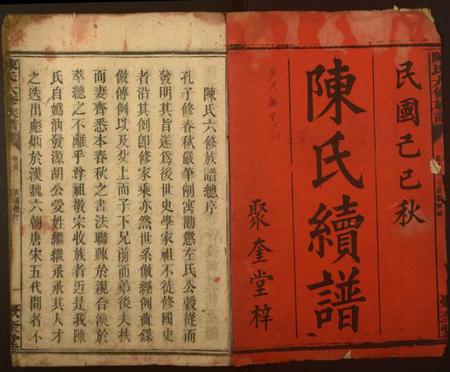 民國己巳秋
陳氏續譜
聚奎堂梓
陳氏六修族譜
陳氏六修族譜總序
孔子修春秋嚴筆削寓勸懲左氏公穀從而
發明其旨遂爲後世史學家祖不徒修國史
者沿其例卽修家乘亦然世系倣經例齒錄
倣傳例以及炎上而子不兄前而弟後夫扶
而妻齊悉本春秋之書法聯疎於親合渙於
萃總之不離乎尊祖敬宗收族者近是我陳
氏自嬀汭發源胡公受姓繼繼承承其人才
之迭出彪炳於漢魏六朝唐宋五代間者不
聚奎堂